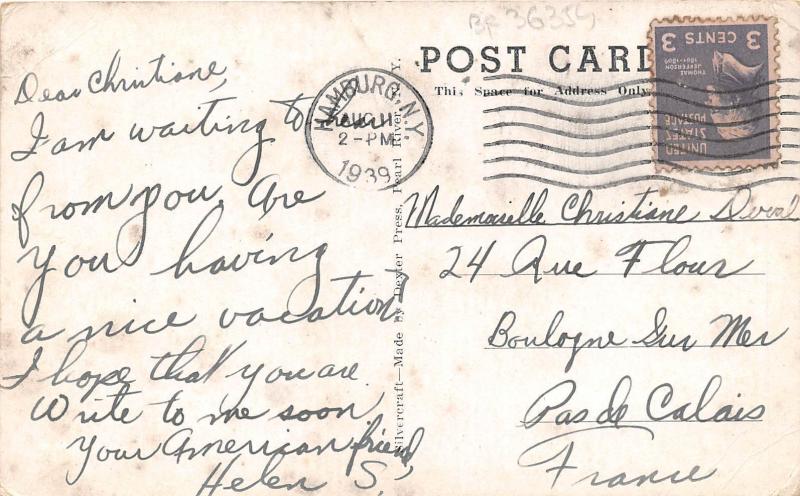 BF 36354
Dear Christiane,
I am waiting to hear
from you. Are
you having
a nice vacation
I hope that you are.
Write to me soon
Your American friend,
Helen S.
HAMBURG, N.Y.
AUG 11
2-PM
1939
Silvercraft—Made by Dexter Press, Pearl River, N.Y.
POST CARD
This Space for Address Only
3 CENTS 3
THOMAS
JEFFERSON
1801-1809
UNITED
STATES
POSTAGE
Mademoiselle Christiane
24 Rue Flour
Boulogne Sur Mer
Pas de Calais
France